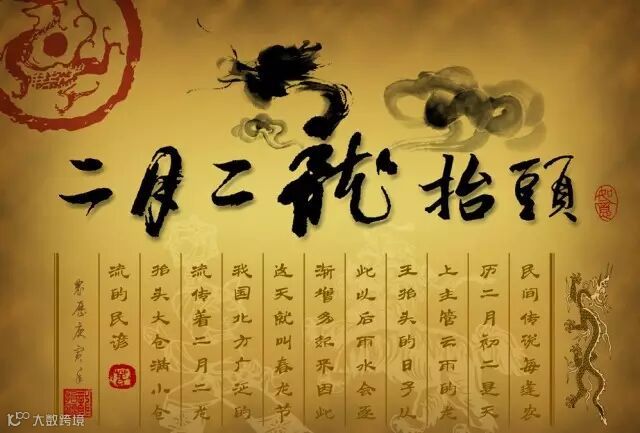 二月二龍抬頭
如意
民间传说每逢农
历二月初二是天
上主管云雨的龙
王抬头的日子从
此以后雨水会逐
渐增多起来因此
这天就叫春龙节
我国北方广泛的
流传着二月二龙
抬头大仓满小仓
流的民谚
農歷庚寅年
大数跨境